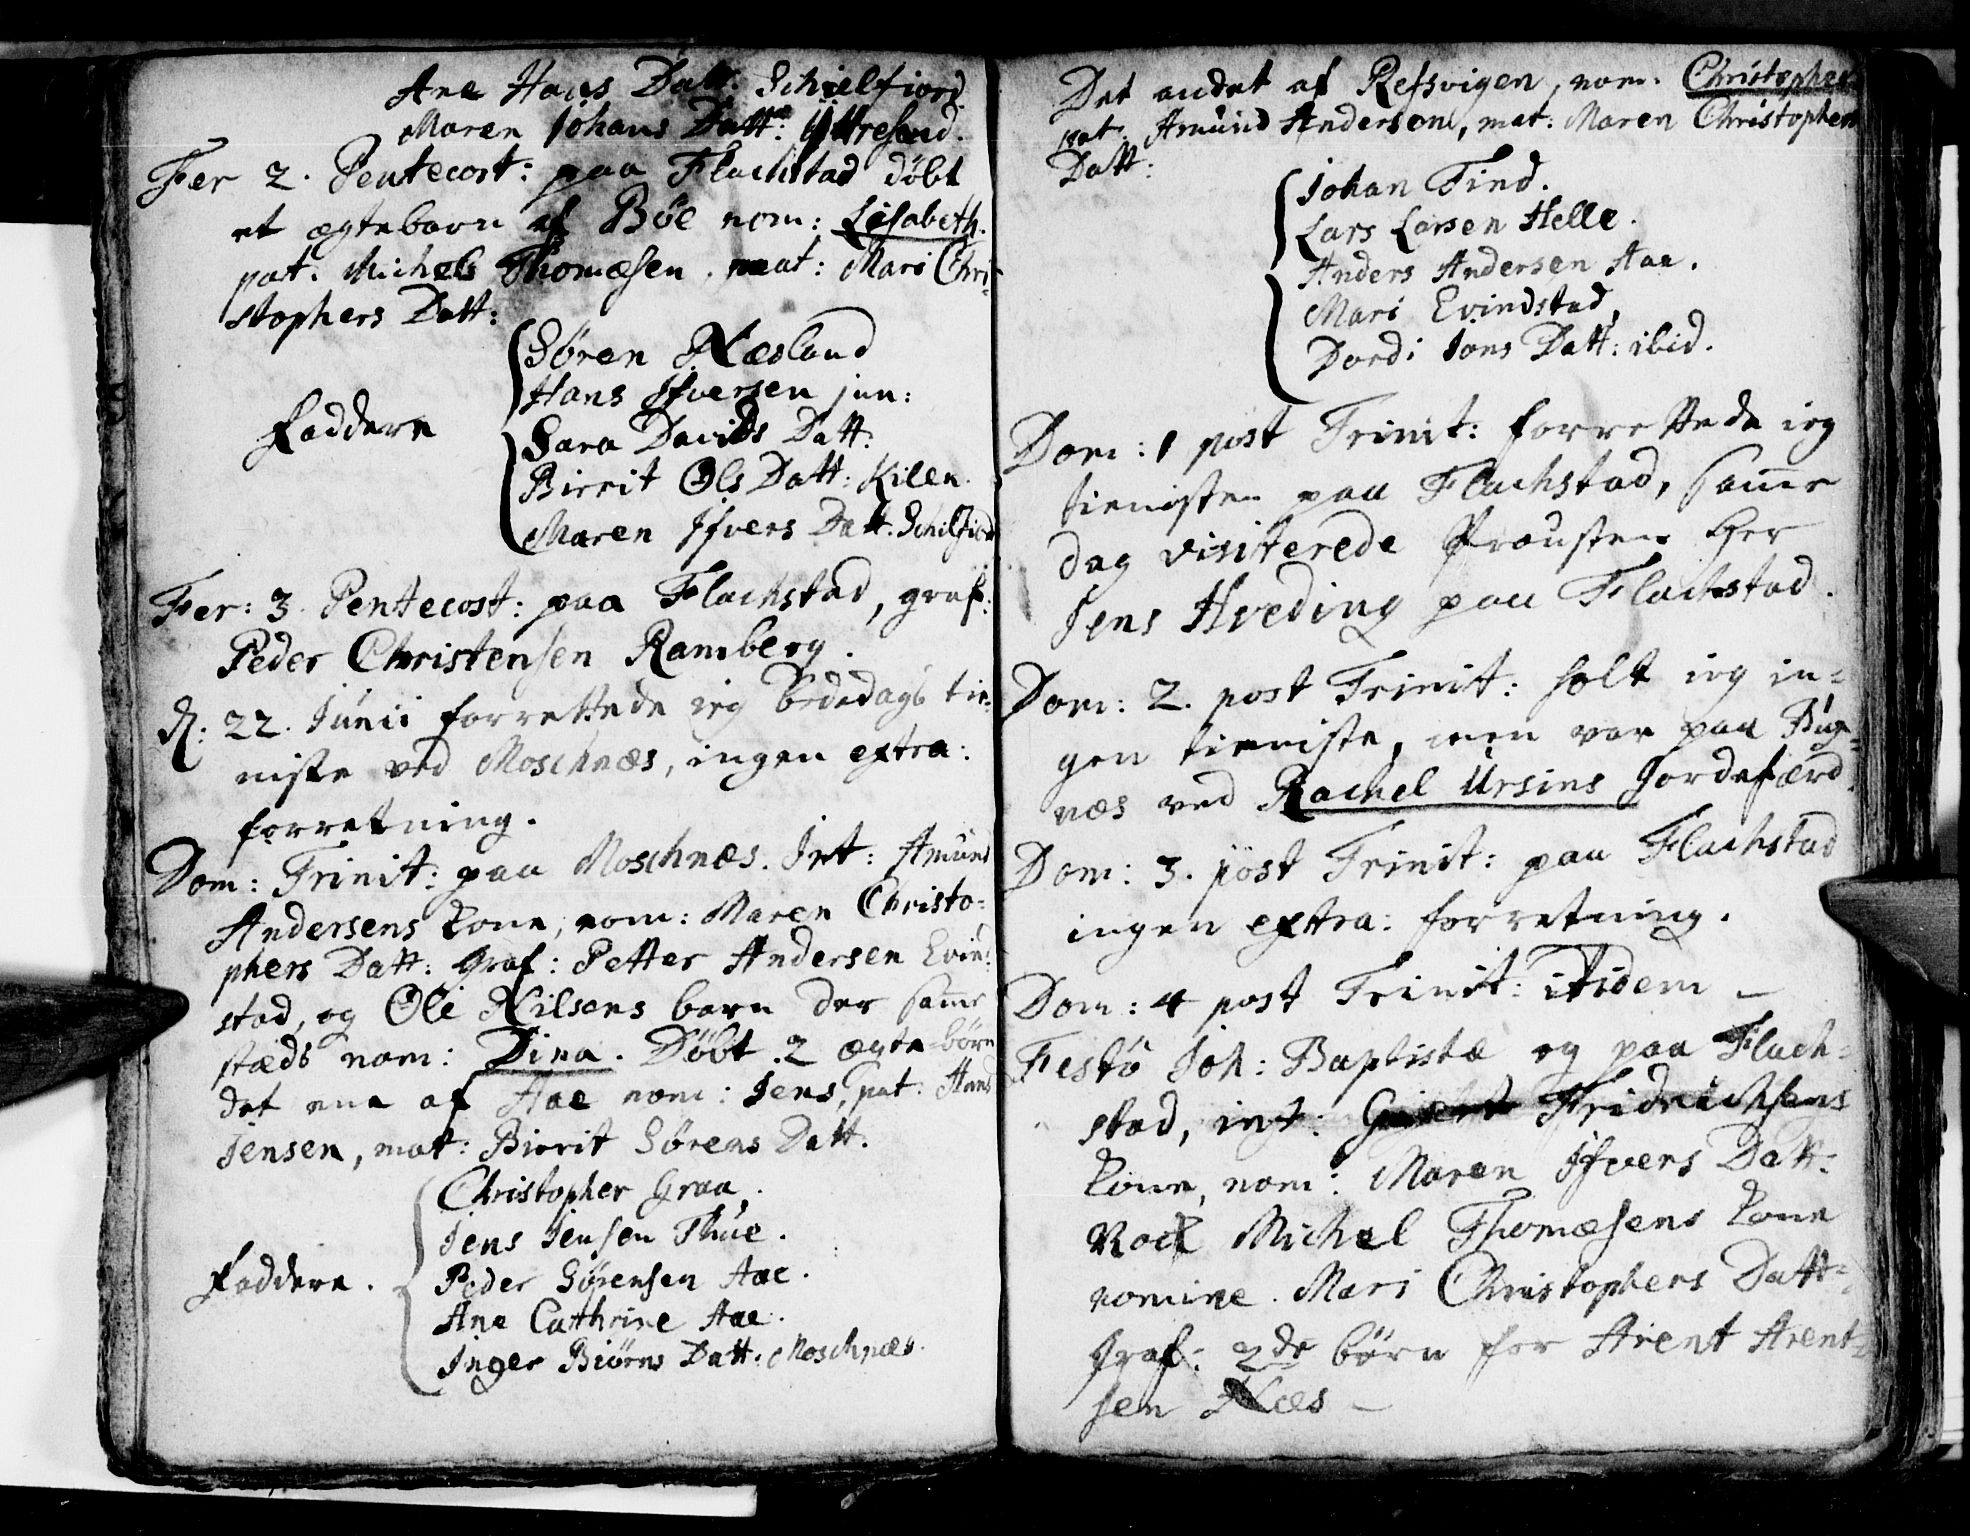 Ane Hans Datt: Schielfiord.
Maren Johans Datt: Yttresand.
Fer 2. Pentecost: paa Flachstad døbt
et ægtebarn af Bøe nom: Lisabeth.
pat. Michel Thomæsen, mat: Mari Chri-
stophers Datt:
Søren Næsland
Hans Ifversen jun:
Faddere
Sara Davids Datt:
Birrit Ols Datt: Kilen.
Maren Ifvers Datt. Schilfiord
Fer: 3. Pentecost: paa Flachstad, graf:
Peder Christensen Ramberg.
D: 22. Junii forrettede ieg bededags tie-
niste ved Moschnæs, ingen extra:
forretning.
Dom: Trinit: paa Moschnæs. Int: Amund
Andersens kone, nom: Maren Christo-
phers Datt: Graf: Petter Andersen Evin-
stad, og Ole Nilsens barn der samme
stæds nom: Dina. Døbt 2 ægte børn
det ene af Aae nom: Jens, pat: Hans
Jensen, mat: Birrit Sørens Datt.
Christopher Graa.
Jens Jensen Thue.
Faddere. Peder Sørensen Aae.
Ane Cathrine Aae.
Inger Biørns Datt: Moschnæs.
Det andet af Refsvigen, nom: Christopher
pat: Amund Andersen, mat: Maren Christophers
Datt:
Johan Find.
Lars Larsen Helle.
Anders Andersen Aae.
Mari Evindstad,
Dordi Jons Datt: ibid.
Dom: 1 post Trinit: forrettede ieg
tienisten paa Flachstad, samme
dag visiterede Prousten Her
Jens Hveding paa Flachstad.
Dom: 2. post Trinit: holt ieg in-
gen tieniste, men var paa Bug-
næs ved Rachel Ursins Jordefærd.
Dom: 3. post Trinit: paa Flachstad
ingen extra: forretning.
Dom: 4 post Trinit: itidem
Festo Joh: Baptistæ og paa Flach-
stad, int: Fridrichsens
kone, nom: Maren Ifvers Datt:
Nock Michel Thomæsens kone
nomine Mari Christophers Datt-
Graf: 2de børn for Arent Arent-
sen Næs